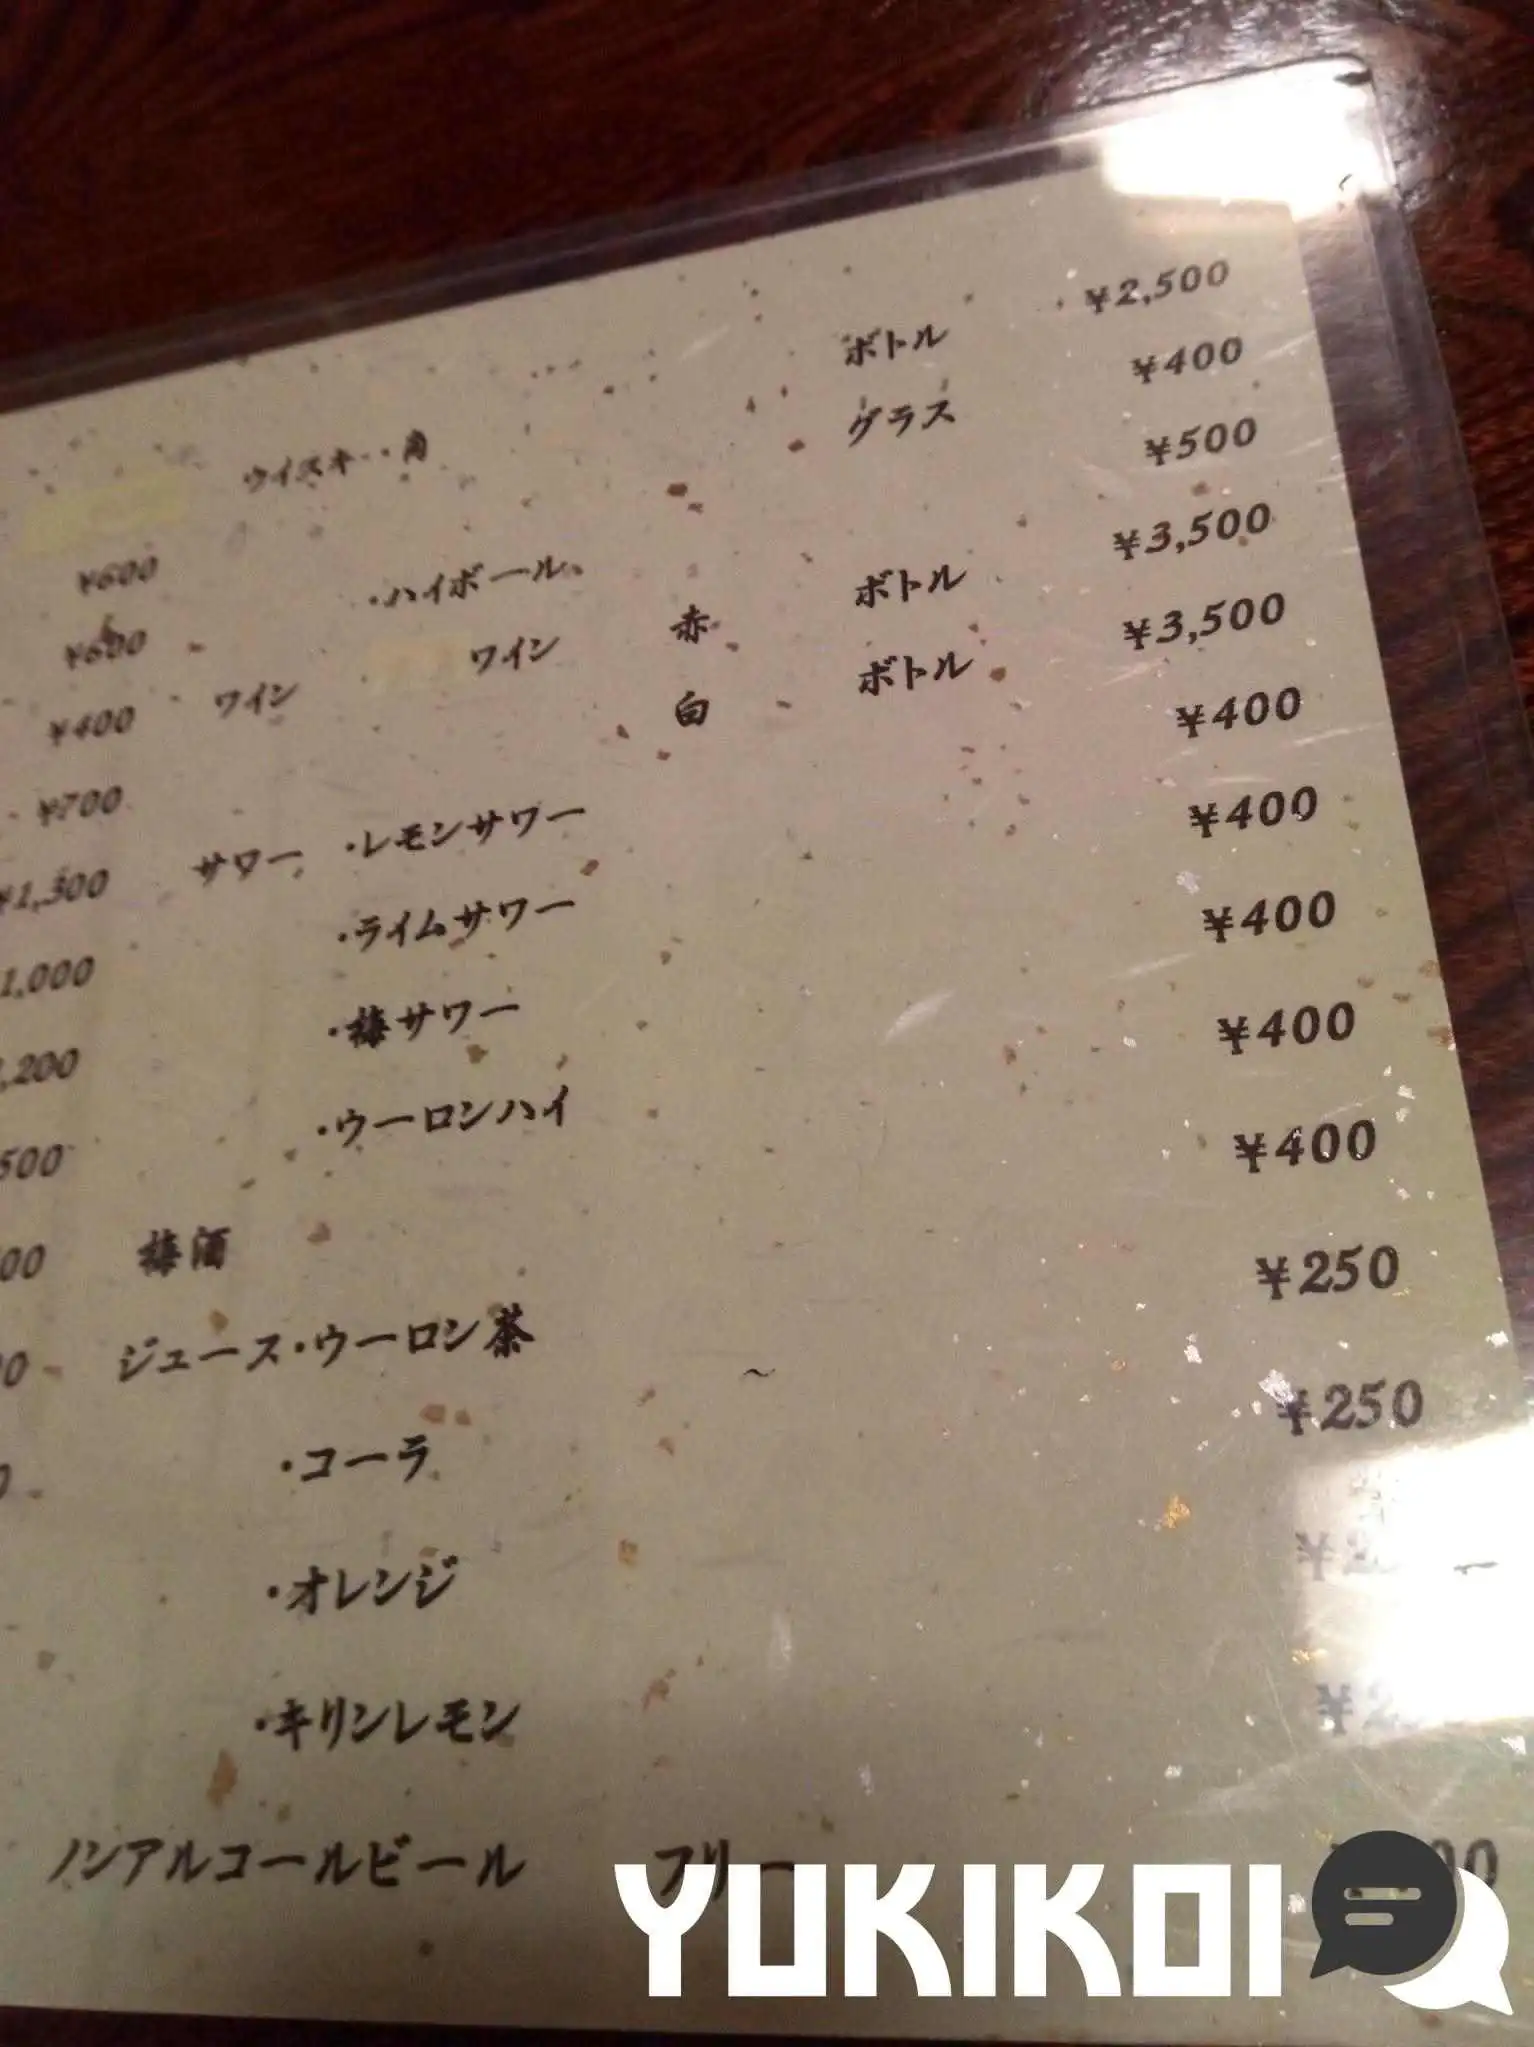 ¥600
¥600
¥400
¥700
¥1,300
1,000
,200
500
00
ウイスキ・・角 ボトル ¥2,500
グラス ¥400
・ハイボール ¥500
ワイン ワイン 赤 ボトル ¥3,500
白 ボトル ¥3,500
サワー ・レモンサワー ¥400
・ライムサワー ¥400
・梅サワー ¥400
・ウーロンハイ ¥400
梅酒 ¥400
ジュース・ウーロン茶 ¥250
・コーラ ¥250
・オレンジ
・キリンレモン
ノンアルコールビール フリー
YUKIKOI